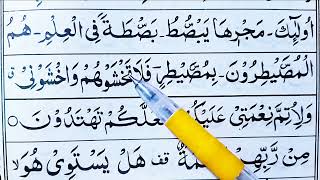 اُولٰٓئِكَ - مَجْرٖىهَا يَبْصُۜطُ - بَصْۜطَةً فِي الْعِلْمِ - هُمُ
الْمُصَۜيْطِرُوْنَ - بِمُصَيْطِرٍ فَلَا تَخْشَوْهُمْ وَاخْشَوْنِيْ ق
وَلِاُتِمَّ نِعْمَتِيْ عَلَيْكُمْ لَعَلَّكُمْ تَهْتَدُوْنَ ○
مِنْ رَّبِّهِمْ قف هَلْ يَسْتَوِيْ هُوَ لا